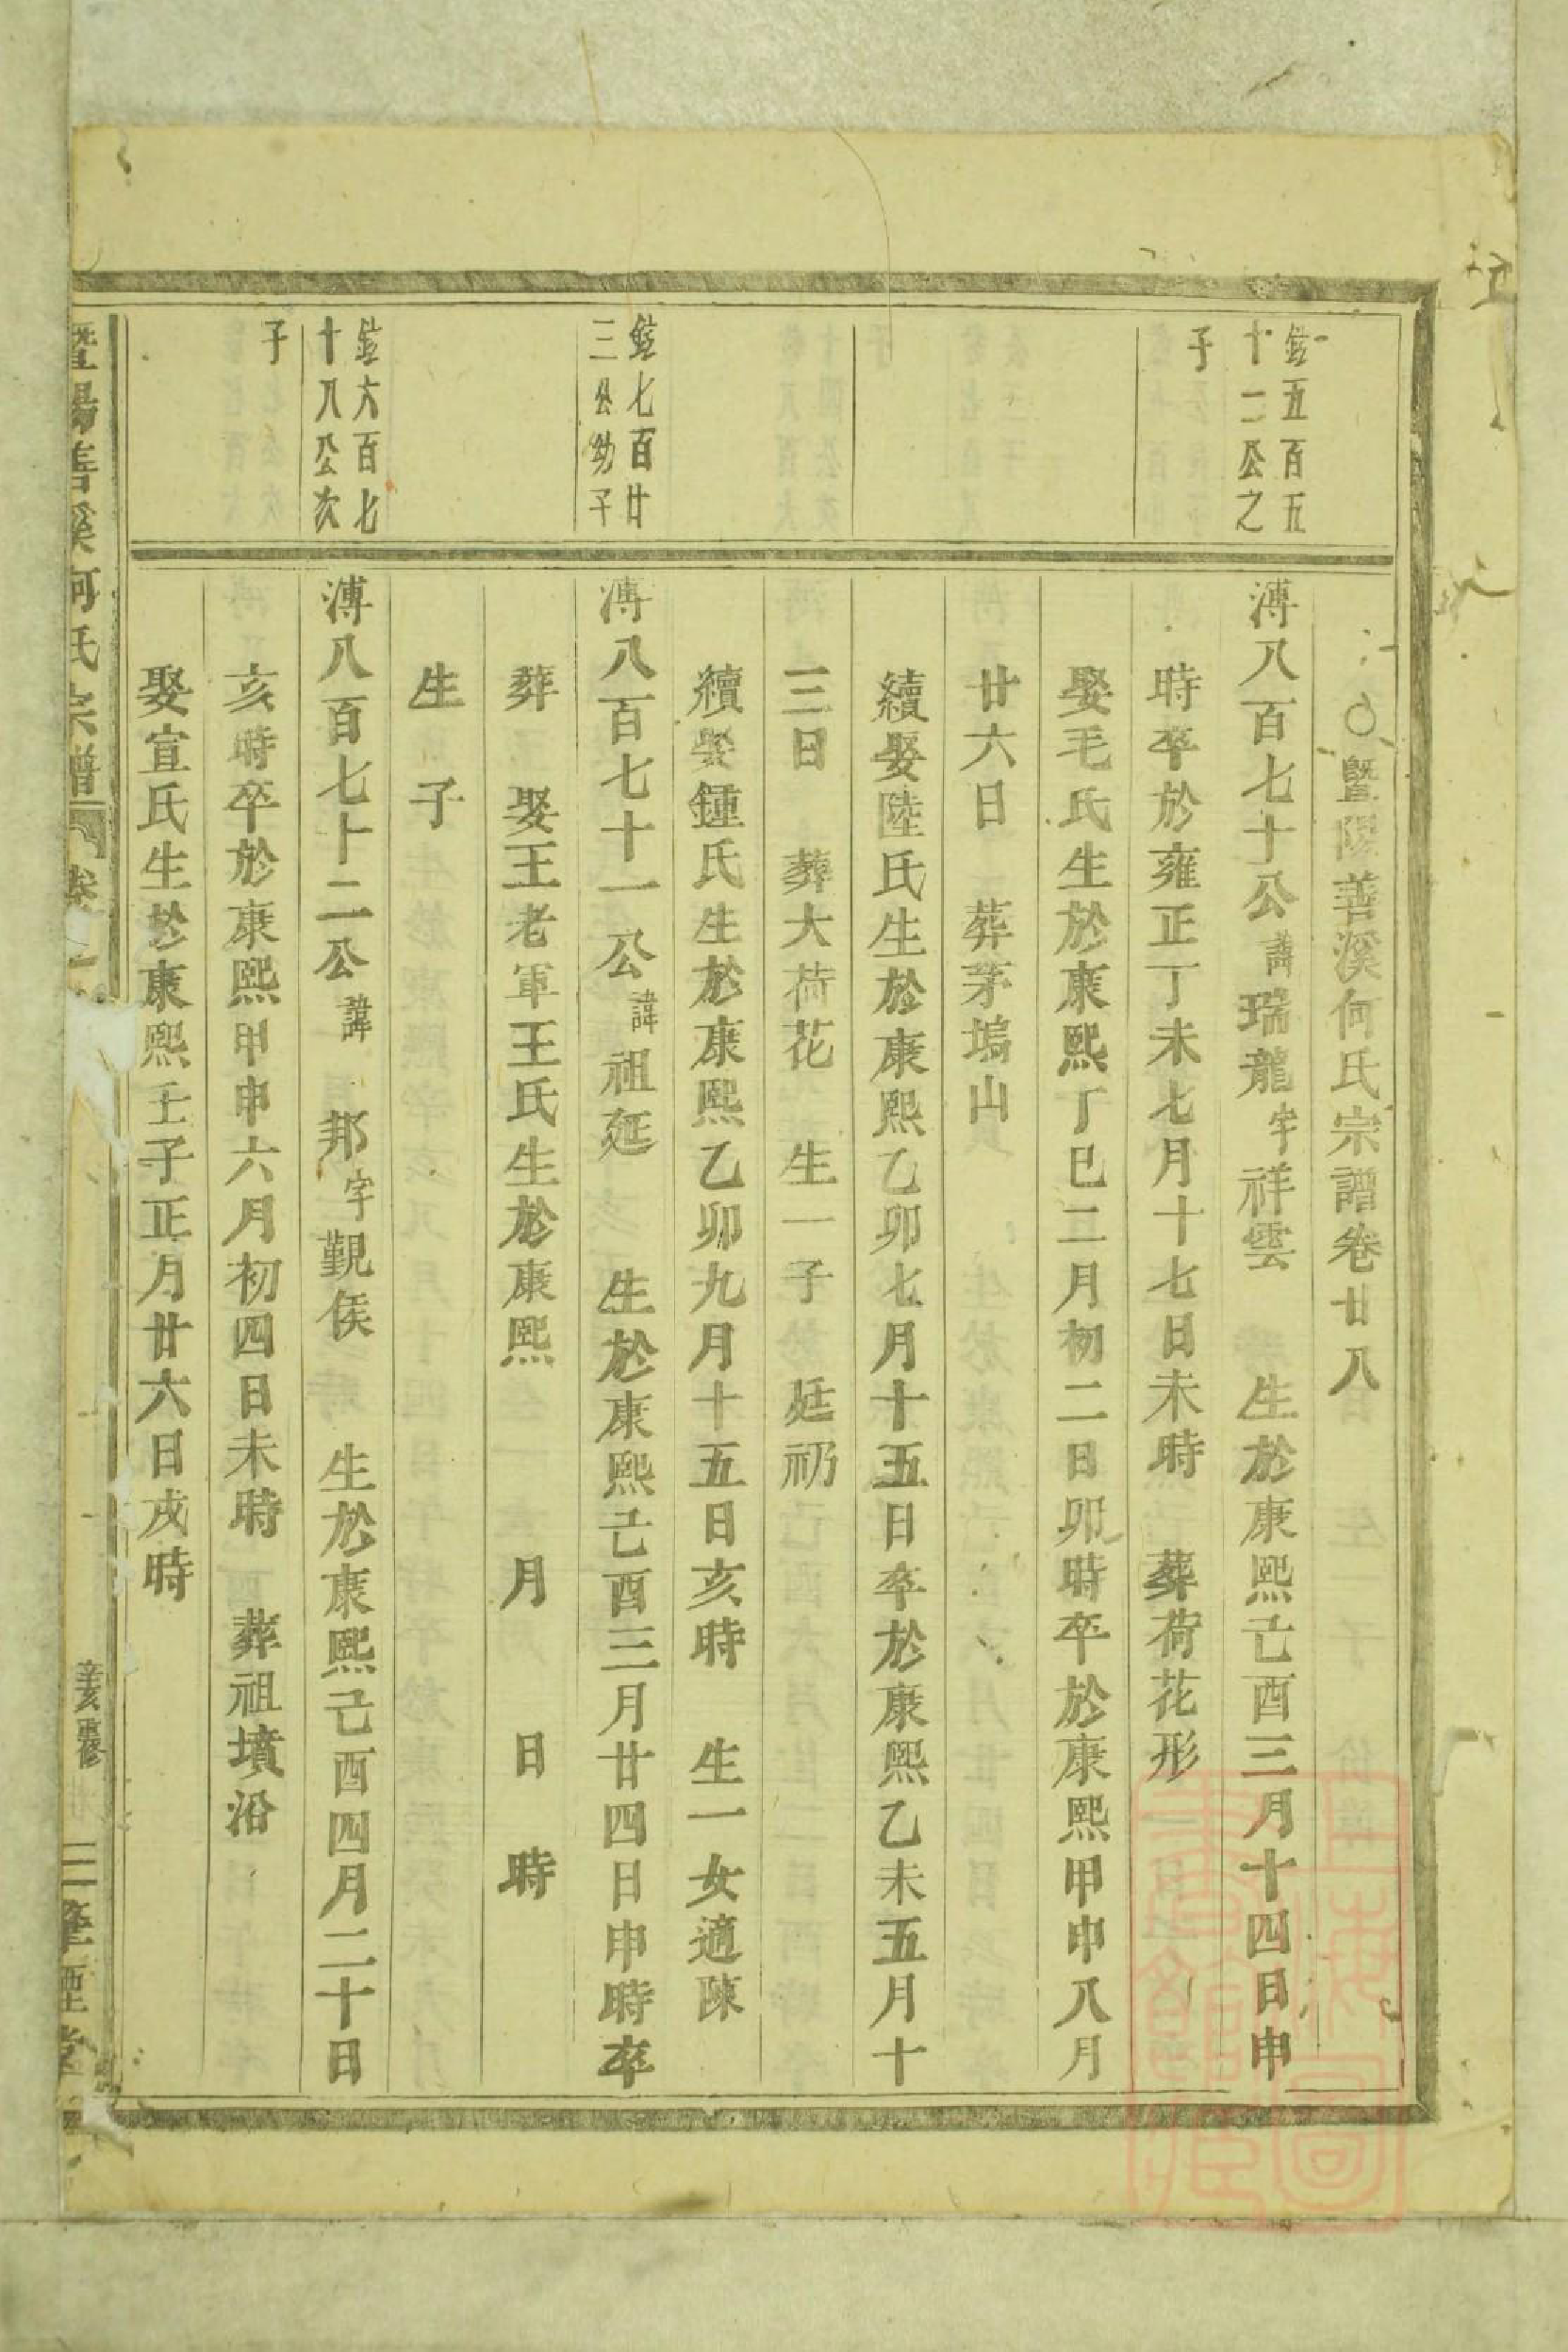 暨陽善溪何氏宗譜卷廿八
鉉五百五
十二公之
子
溥八百七十公諱瑞龍字祥雲　生於康熙己酉三月十四日申
時卒於雍正丁未七月十七日未時　葬荷花形
娶毛氏生於康熙丁巳二月初二日卯時卒於康熙甲申八月
廿六日　葬茅塢山
續娶陸氏生於康熙乙卯七月十五日卒於康熙乙未五月十
三日　葬大荷花　生一子　廷礽
續娶鍾氏生於康熙乙卯九月十五日亥時　生一女適陳
鉉七百廿
三公幼子
溥八百七十一公諱祖延　生於康熙己酉三月廿四日申時卒
葬　娶王老軍王氏生於康熙　月　日　時
生　子
鉉六百七
十八公次
子
溥八百七十二公諱邦字覲侯　生於康熙己酉四月二十日
亥時卒於康熙甲申六月初四日未時　葬祖墳沿
娶宣氏生於康熙壬子正月廿六日戌時
暨陽善溪何氏宗譜　卷
辛亥重修
上海圖書館藏